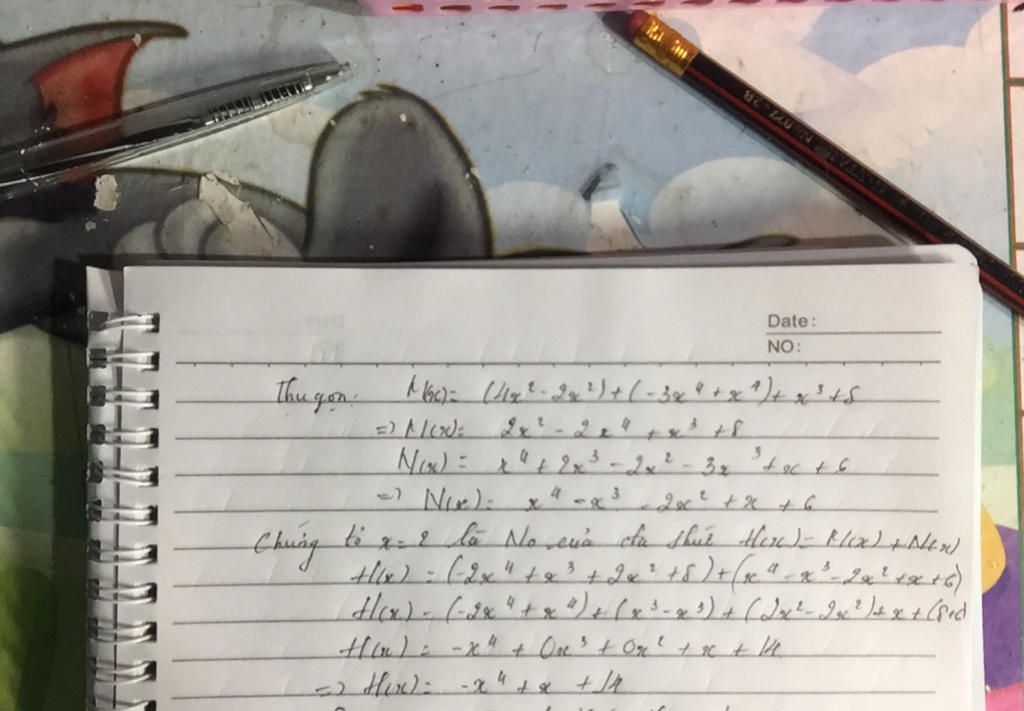 Date:
NO:
Thu gọn: M(x) = (4x² - 2x²) + (-3x⁴ + x⁴) + x³ + 8
=> M(x) = 2x² - 2x⁴ + x³ + 8
N(x) = x⁴ + 2x³ - 2x² - 3x³ + x + 6
=> N(x) = x⁴ - x³ - 2x² + x + 6
Chứng tỏ x = 2 là No của đa thức H(x) = M(x) + N(x)
H(x) = (-2x⁴ + x³ + 2x² + 8) + (x⁴ - x³ - 2x² + x + 6)
H(x) = (-2x⁴ + x⁴) + (x³ - x³) + (2x² - 2x²) + x + (8+6)
H(x) = -x⁴ + 0x³ + 0x² + x + 14
=> H(x) = -x⁴ + x + 14